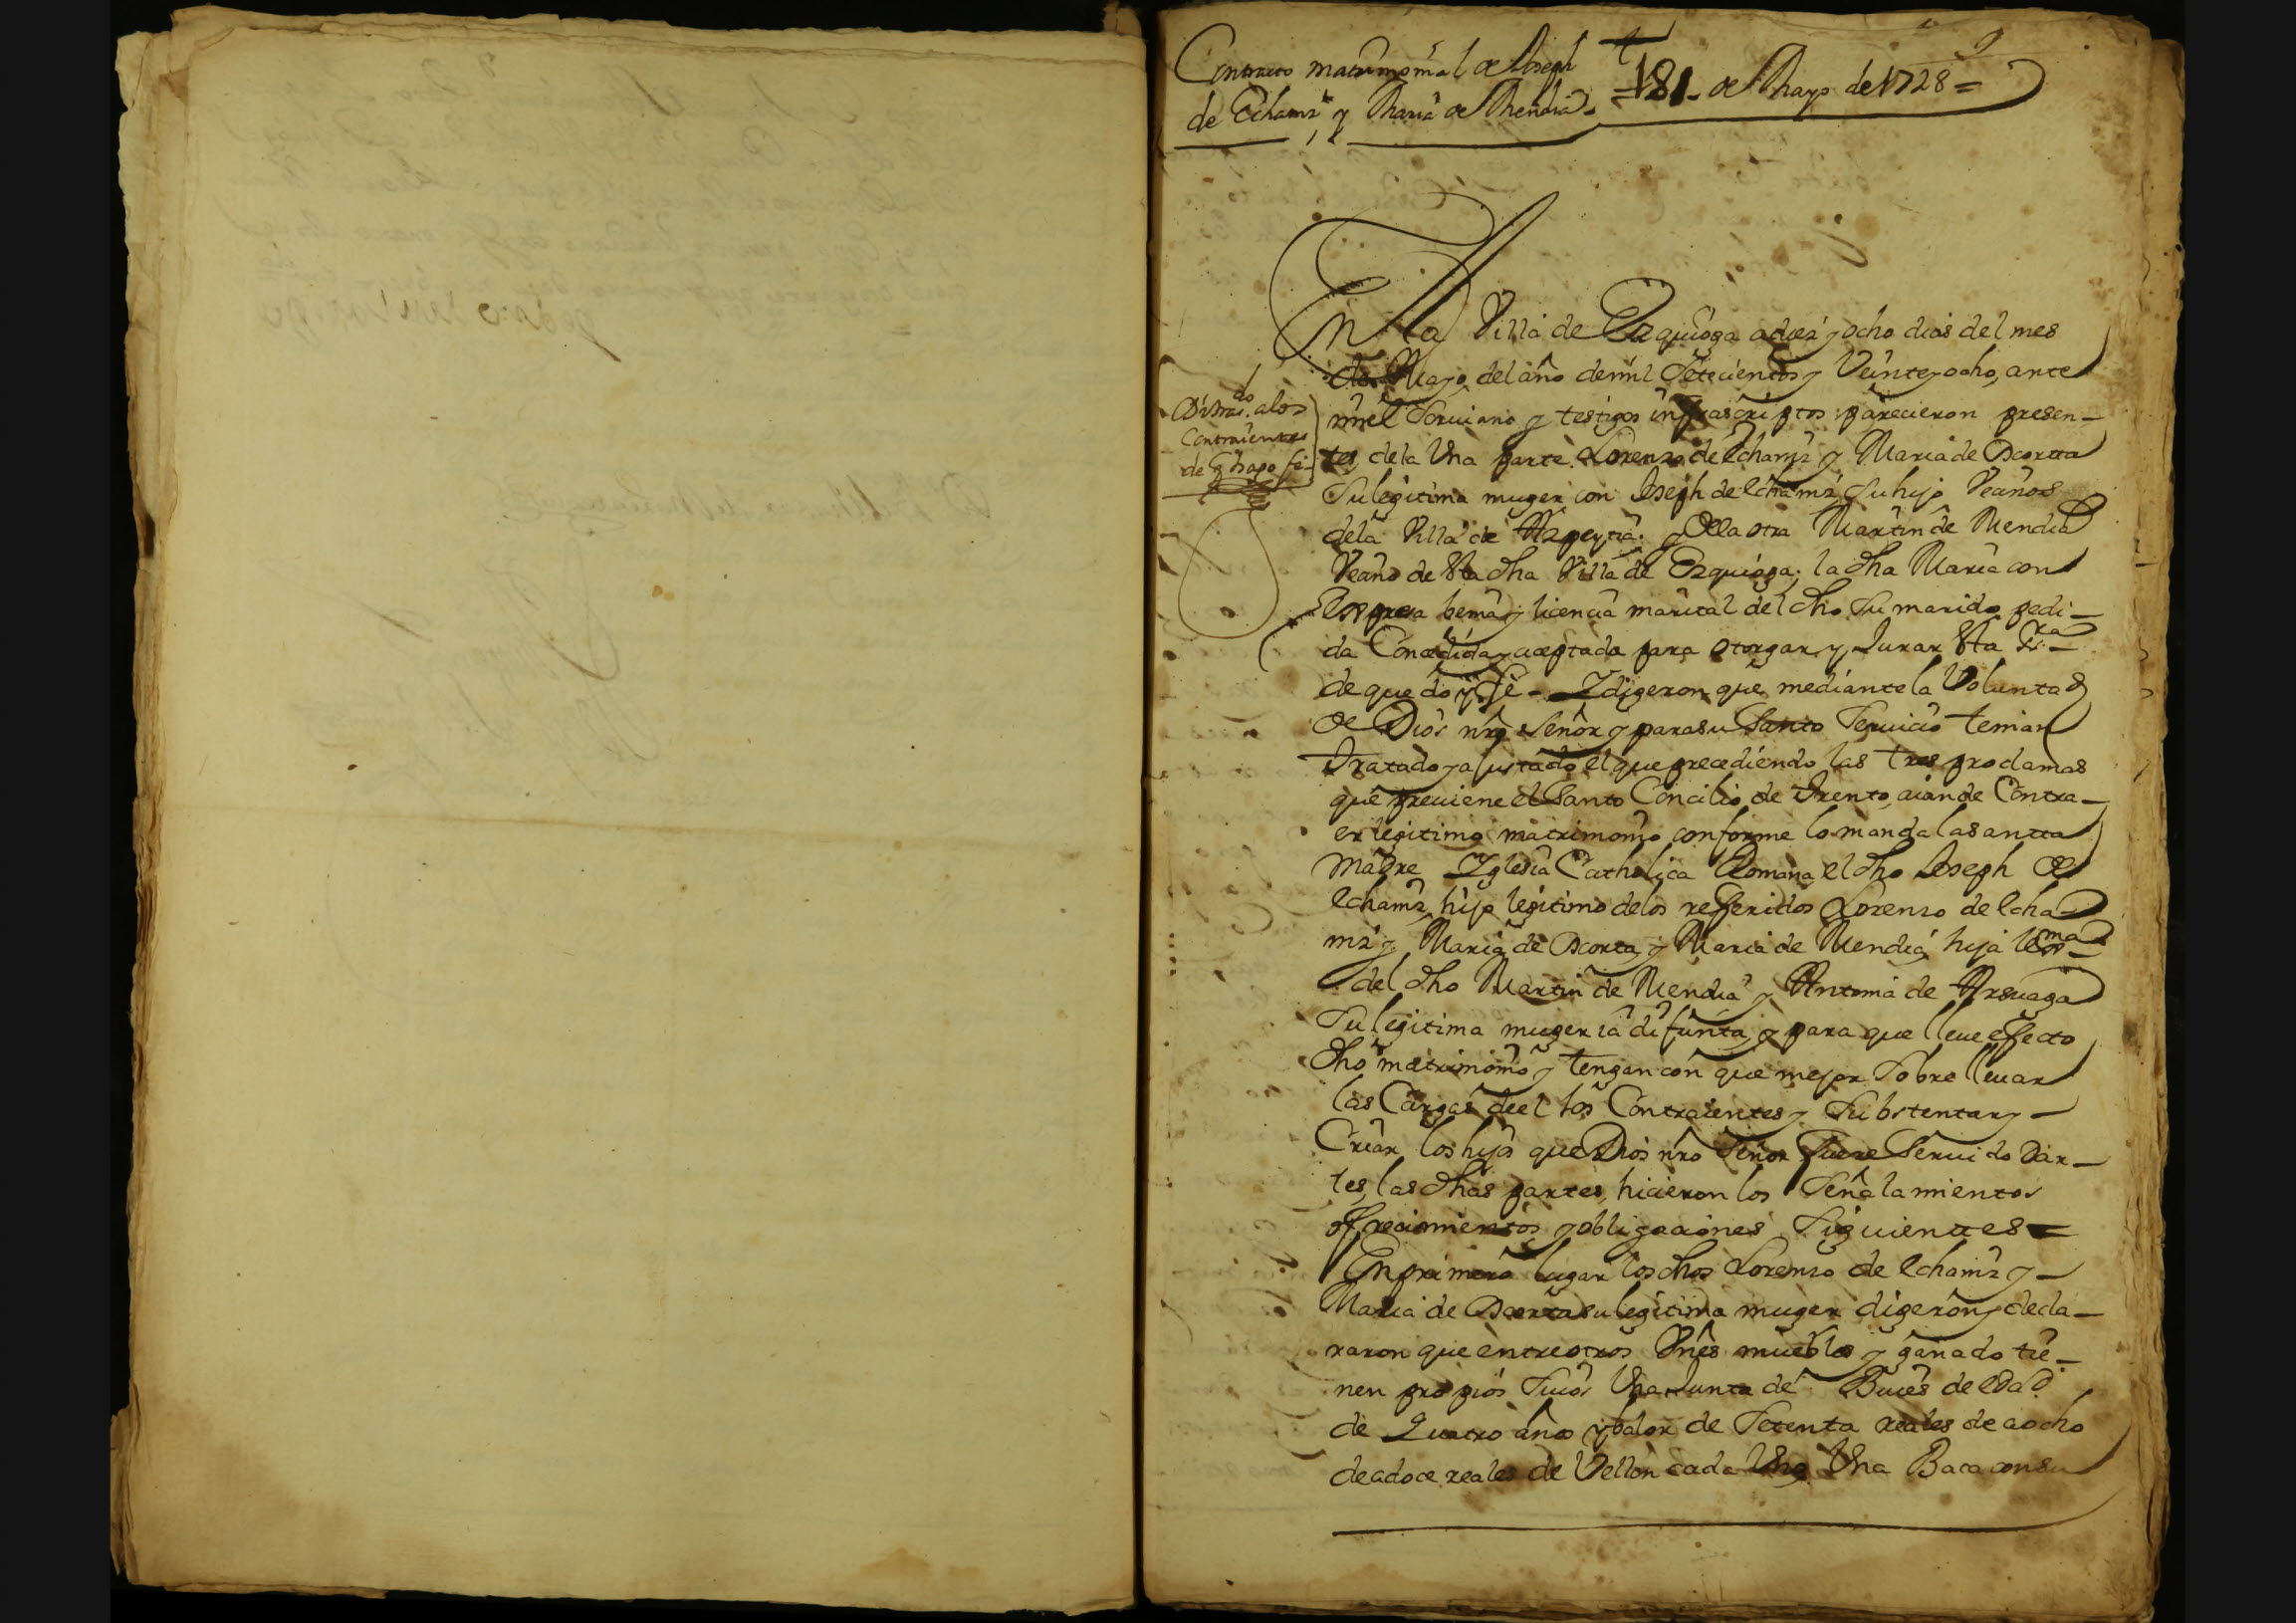 Contracto matrimonial de Joseph
de Echaniz y Maria de Mendia
18 de Mayo de 1728 =
9
En la Villa de Ezquioga a diez y ocho dias del mes
de Mayo, del año de mil Setecientos y Veinte y ocho, ante
mi el Scriuano y testigos infrascriptos parecieron presen-
tes, de la Vna parte Lorenzo de Echaniz y Maria de Acotta
Su legitima muger con Joseph de echaniz Su hijo Veçinos
de la Villa de Azpeytia. y de la otra Martin de Mendia
Veçino de esta dha Villa de Ezquioga; la dha Maria con
expresa benia y licencia marital del dho Su marido, pedi-
da Concedida y aceptada para otorgar y Jurar esta Scra
de que doy fe - Y digeron que mediante la Voluntad
de Dios nro Señor y para su Santo Seruicio tenian
tratado y ajustado el que precediendo las tres proclamas
que preuiene el Santo Concilio de trento, aian de Contra-
er legitimo matrimonio conforme lo manda la santta
Madre Yglesia Catholica Romana, el dho Joseph de
echaniz, hijo legitimo de los refferidos Lorenzo de echa-
niz y Maria de Acotta, y Maria de Mendia, hija legma
del dho Martin de Mendia y Antonia de Arsuaga
Su legitima muger ia difunta, y para que lleue effecto
dho matrimonio y tengan con que mejor Sobre lleuar
las Cargas de el los Contraientes y Substentar y -
Criar los hijos que Dios nro Señor fuere Seruido Dar-
les, las dhas partes, hicieron los Señalamientos
offrecimientos y obligaciones Siguienttes =
En primero lugar los dhos Lorenzo de echaniz y -
Maria de Acotta su legitima muger digeron y decla-
raron que entre otros Vnes muebles y ganado tie-
nen propios Suios Vna Junta de Buies de edad
de quatro años y balor de Setenta reales de a ocho
de a doce reales de Vellon cada Vno Vna Baca con su
Di tras.do a los
Contraientes
de q hago fe-